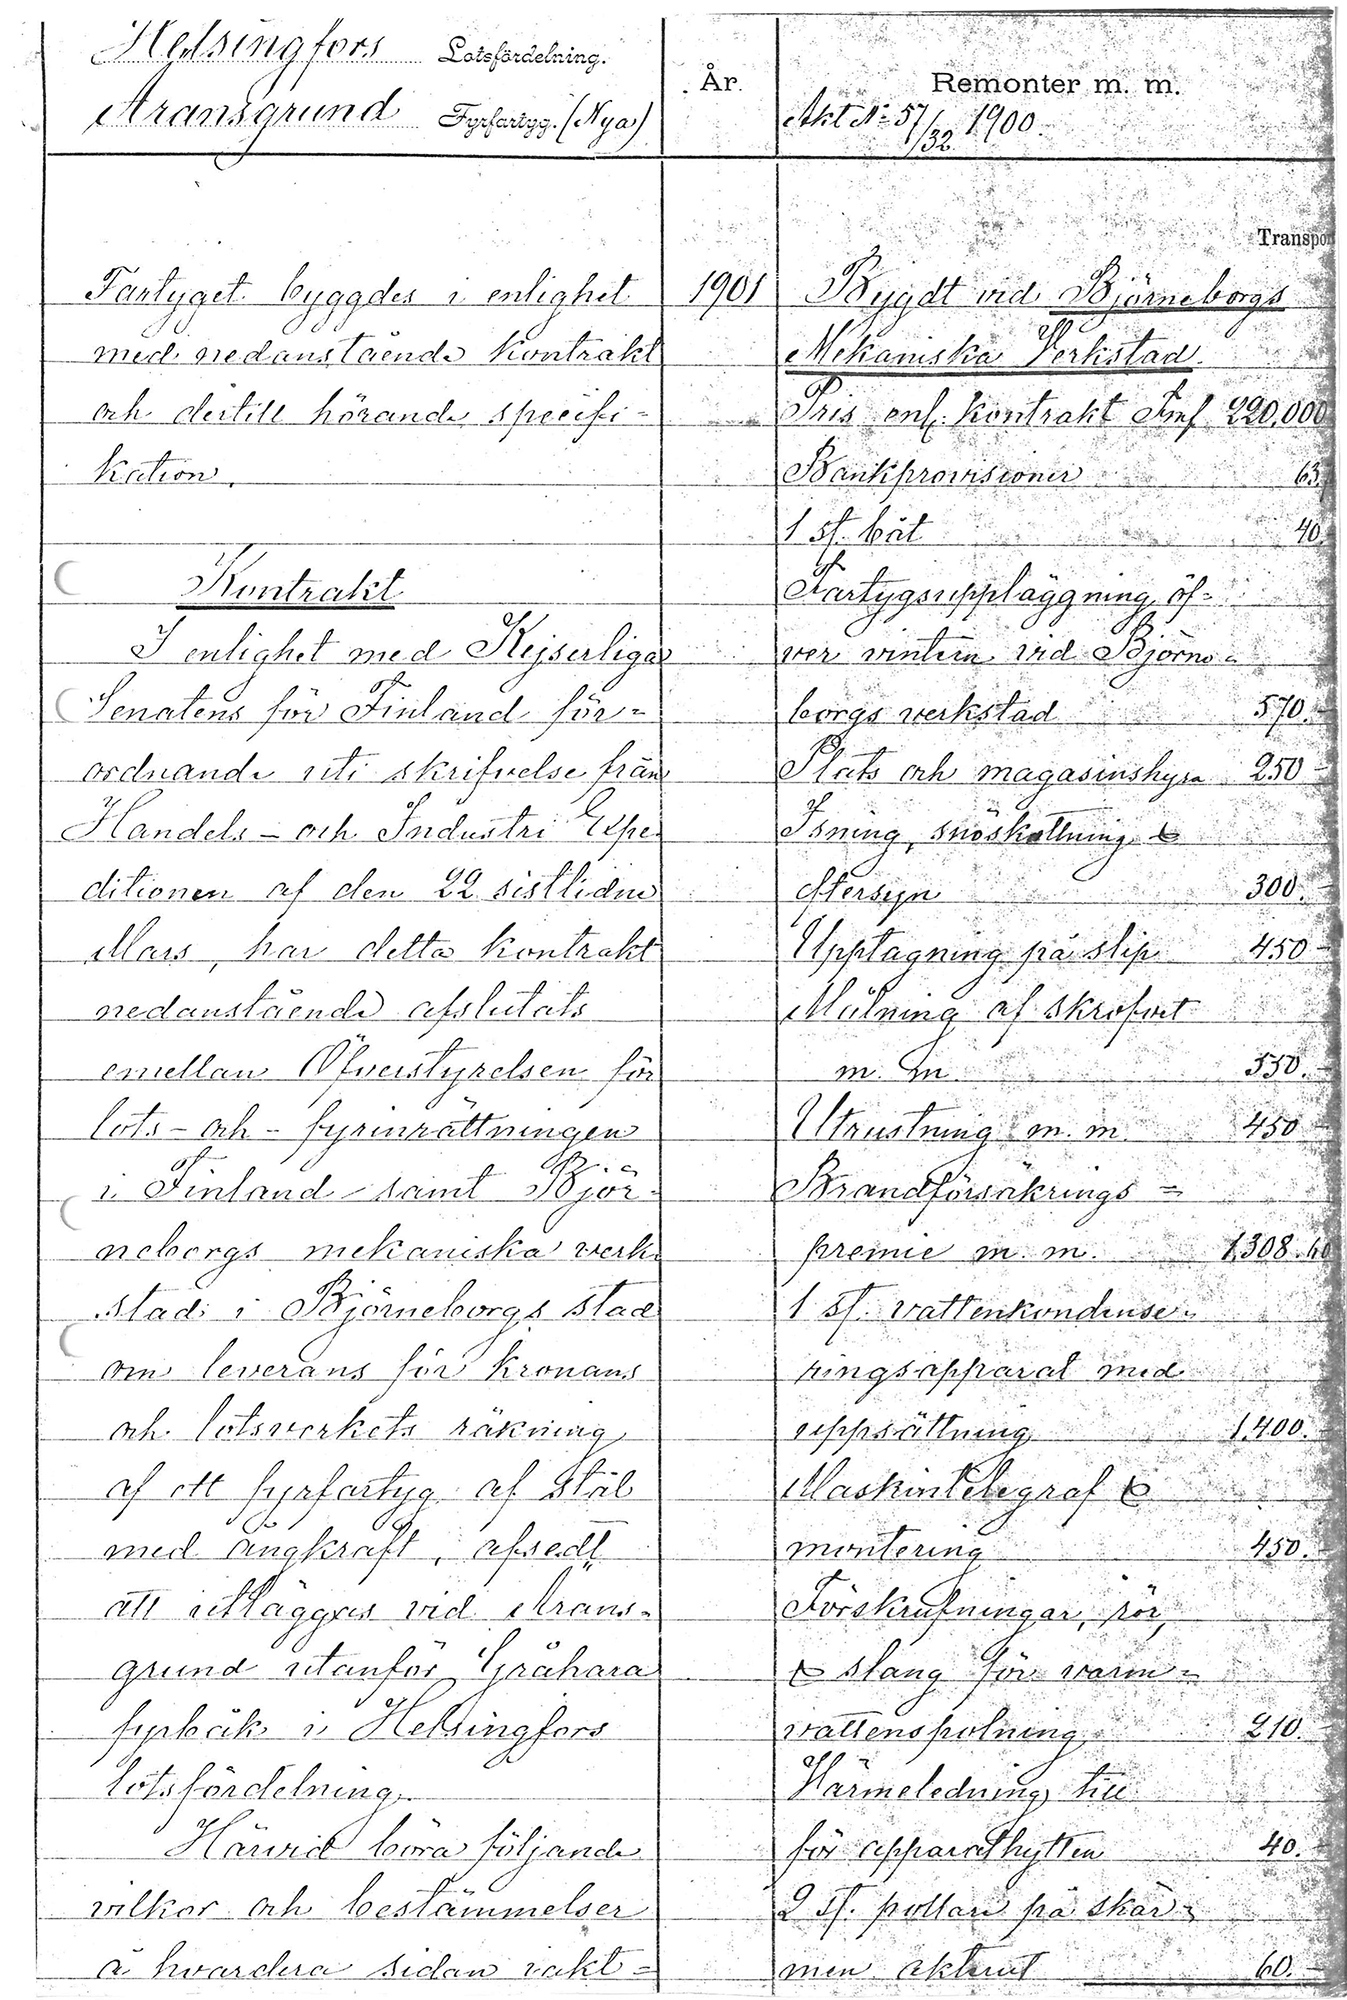 Helsingfors Lotsfördelning.
Äransgrund Fyrfartyg. (Nya)
År.
Remonter m. m.
Akt No 57/32 1900.
Fartyget byggdes i enlighet
med nedanstående kontrakt
och dertill hörande specifi=
kation.
Kontrakt
I enlighet med Kejserliga
Senatens för Finland för=
ordnande uti skrifvelse från
Handels- och Industri Expe
ditionen af den 22 sistlidne
Mars, har detta kontrakt
nedanstående afslutats
emellan Öfverstyrelsen för
lots- och- fyrinrättningen
i Finland samt Björ-
neborgs mekaniska verk
stad i Björneborgs stad
om leverans för kronans
och lotsverkets räkning
af ett fyrfartyg af stål
med ångkraft, afsedt
att utläggas vid Ärans=
grund utanför Gråhara
fyrbåk i Helsingfors
lotsfördelning.
Härvid böra följande
vilkor och bestämmelser
å hvardera sidan iakt=
1901
Transpor
Bygdt vid Björneborgs
Mekaniska Verkstad.
Pris enl. kontrakt Fmf 220,000
Bankprovisioner 63.
1 st. båt 40.
Fartygsuppläggning öf=
ver vintern vid Björne=
borgs verkstad 570.-
Plats och magasinshyra 250 -
Isning, snöskottning &
eftersyn 300.-
Upptagning på slip 450 -
Målning af skrofvet
m. m. 550.-
Utrustning m. m. 450 -
Brandförsäkrings=
premie m. m. 1,308.60
1 st. vattenkondense=
ringsapparat med
uppsättning 1,400.-
Maskintelegraf &
montering 450.-
Förskrufningar, rör,
& slang för varm=
vattenspolning 210.-
Värmeledning till
för apparathytten 40.-
2 st. pollare på skär=
men akterut 60.-